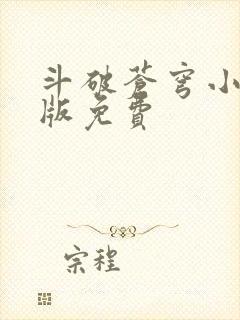 斗破苍穹小
版免费
宗程